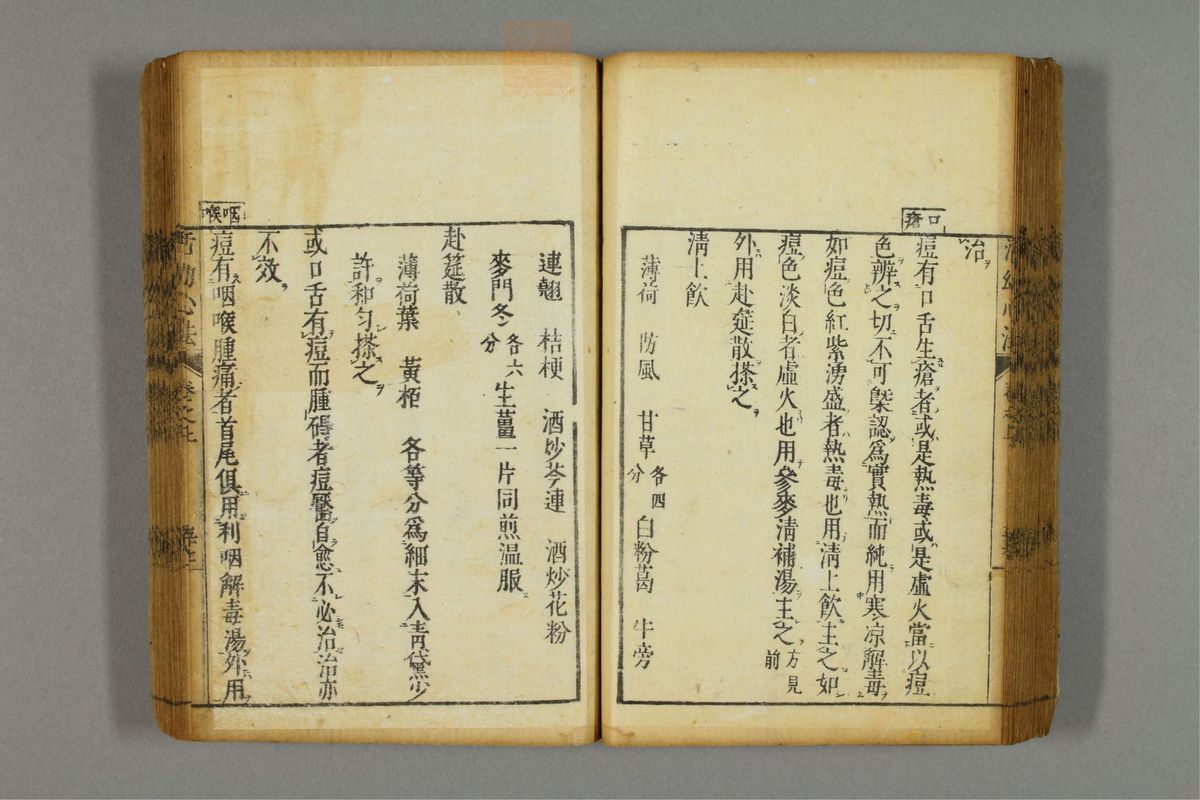 治
口瘡
痘有口舌生瘡者或是熱毒或是虛火當以痘
色辨之切不可槩認爲實熱而純用寒凉解毒
如痘色紅紫湧盛者熱毒也用淸上飲主之如
痘色淡白者虛火也用參麥淸補湯主之方見前
外用赴筵散搽之
淸上飲
薄荷 防風 甘草各四分 白粉葛 牛旁
連翹 桔梗 酒炒芩連 酒炒花粉
麥門冬各六分 生薑一片同煎温服
赴筵散
薄荷葉 黃栢 各等分爲細末入靑黛少
許和勻搽之
或口舌有痘而腫硬者痘靨自愈不必治治亦
不效
咽喉
痘有咽喉腫痛者首尾俱用利咽解毒湯外用